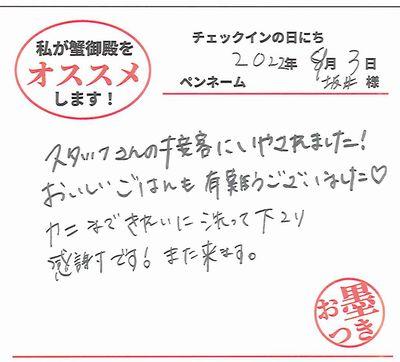 私が蟹御殿を
オススメ
します！
チェックインの日にち
2022年 8月 3日
ペンネーム 坂井 様
スタッフさんの接客にいやされました！
おいしいごはんも有難うございました♡
カニまできれいに洗って下さり
感謝です！また来ます。
お墨つき